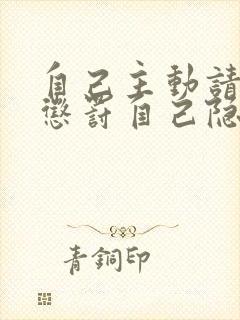 自己主動請
懲罰自己隐
青銅印